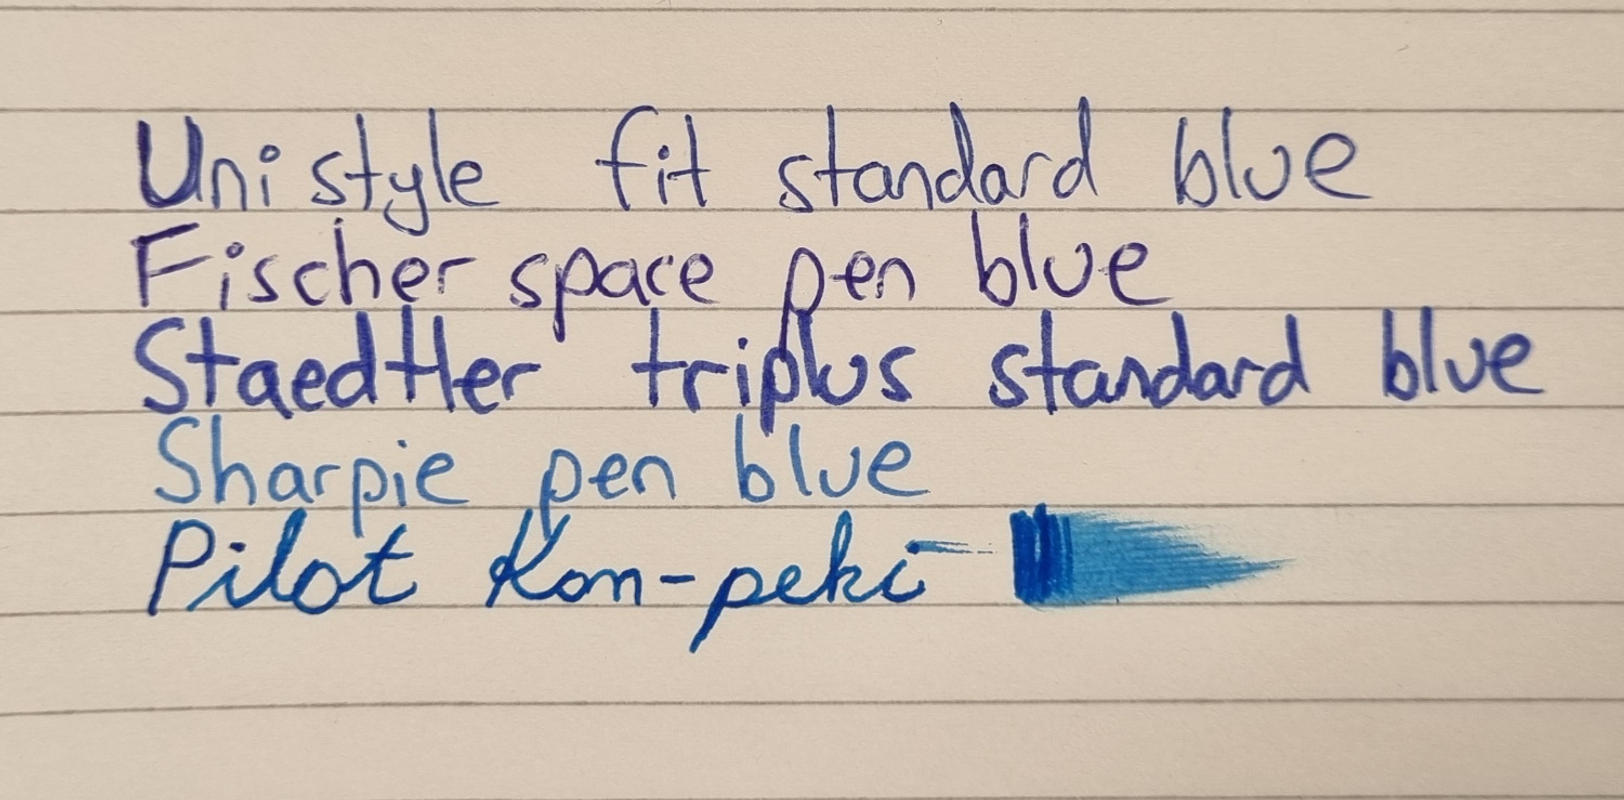 Uni style fit standard blue
Fischer space pen blue
Staedtler triplus standard blue
Sharpie pen blue
Pilot Kon-peki